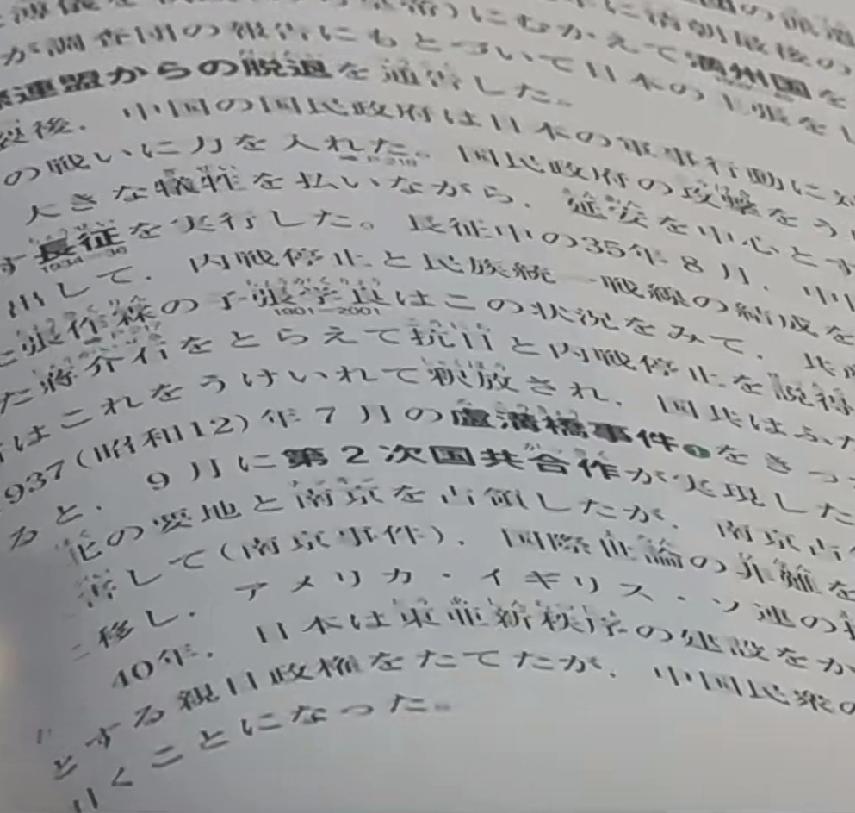 溥儀を
にむかえて満州国を
が調査団の報告にもとづいて日本の主張を
際連盟からの脱退を通告した。
裂後、中国の国民政府は日本の軍事行動に対
の戦いに力を入れた。国民政府の攻撃をう
大きな犠牲を払いながら、延安を中心とす
す長征を実行した。長征中の35年8月、中
1934―36
出して、内戦停止と民族統一戦線の結成を
張作霖の子張学良はこの状況をみて、
1901―2001
た蔣介石をとらえて抗日と内戦停止を説得
はこれをうけいれて釈放され、国共はふた
937(昭和12)年7月の盧溝橋事件❶をきっ
ると、9月に第2次国共合作が実現した
北の要地と南京を占領したが、南京占
害して(南京事件)、国際世論の非難を
に移し、アメリカ・イギリス・ソ連の
40年、日本は東亜新秩序の建設をか
とする親日政権をたてたが、中国民衆の
引くことになった。